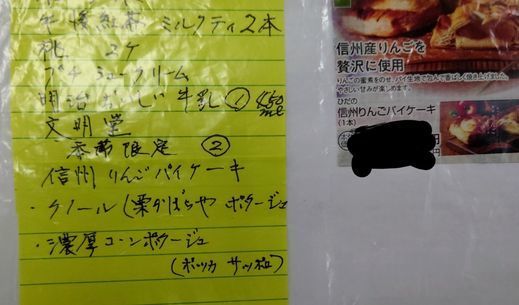 午後紅茶 ミルクティ2本
桃 2ケ
プチシュークリーム
明治おいしい牛乳① 450ml
文明堂
季節限定 ②
信州りんごパイケーキ
・クノール(栗かぼちゃ ポタージュ
・濃厚コーンポタージュ
(ポッカ サッポロ)
信州産りんごを
贅沢に使用
りんごの蜜煮をのせ、パイ生地で包んで香ばしく焼き上げました。
やさしい甘みが楽しめます。
ひだの
信州りんごパイケーキ
(1本)